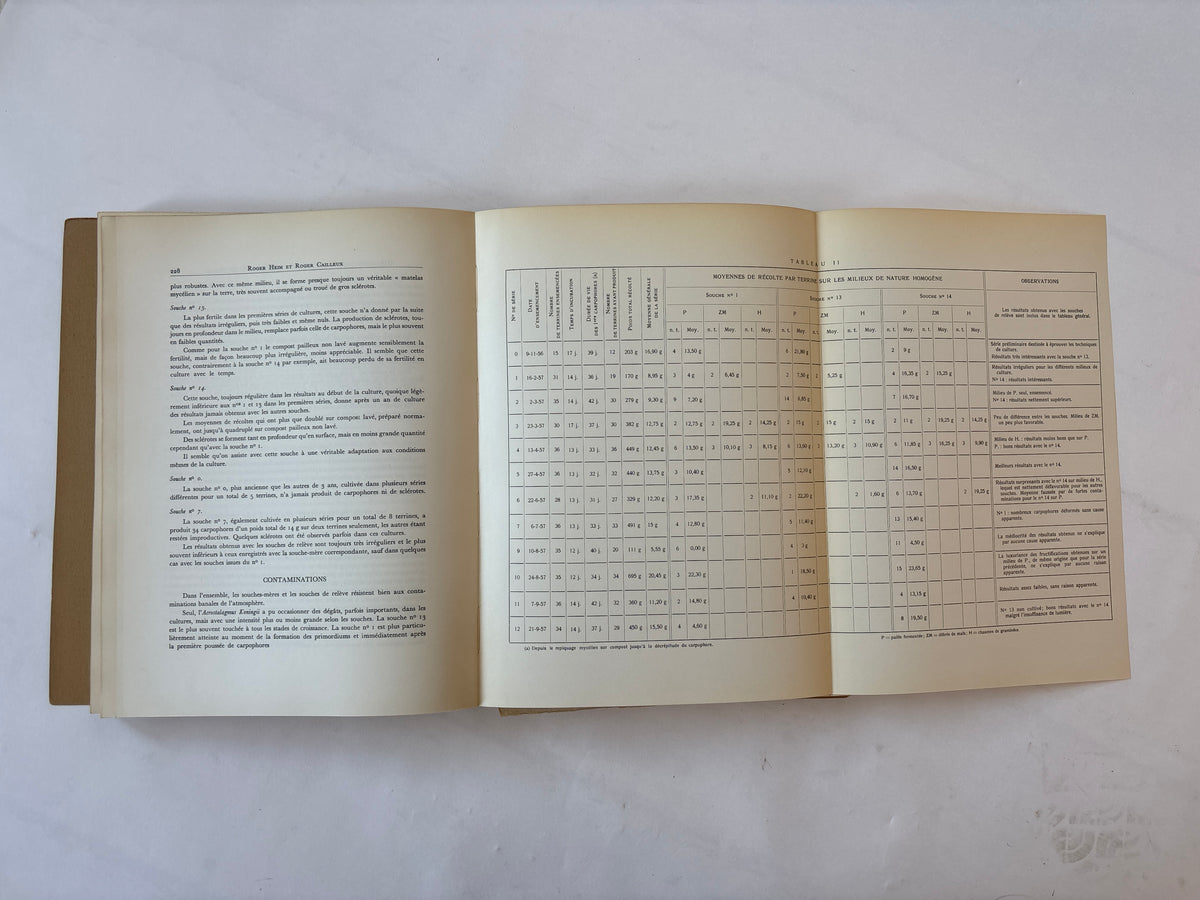 228
ROGER HEIM ET ROGER CAILLEUX
plus robustes. Avec ce même milieu, il se forme presque toujours un véritable « matelas
mycélien » sur la terre, très souvent accompagné ou troué de gros sclérotes.
Souche nº 13.
La plus fertile dans les premières séries de cultures, cette souche n'a donné par la suite
que des résultats irréguliers, puis très faibles et même nuls. La production de sclérotes, tou-
jours en profondeur dans le milieu, remplace parfois celle de carpophores, mais le plus souvent
en faibles quantités.
Comme pour la souche nº 1 le compost pailleux non lavé augmente sensiblement la
fertilité, mais de façon beaucoup plus irrégulière, moins appréciable. Il semble que cette
souche, contrairement à la souche nº 14 par exemple, ait beaucoup perdu de sa fertilité en
culture avec le temps.
Souche nº 14.
Cette souche, toujours régulière dans les résultats au début de la culture, quoique légè-
rement inférieure aux nos 1 et 13 dans les premières séries, donne après un an de culture
des résultats jamais obtenus avec les autres souches.
Les moyennes de récoltes ont plus que doublé sur compost lavé, préparé normale-
ment, ont jusqu'à quadruplé sur compost pailleux non lavé.
Des sclérotes se forment tant en profondeur qu'en surface, mais en moins grande quantité
cependant qu'avec la souche nº 1.
Il semble qu'on assiste avec cette souche à une véritable adaptation aux conditions
mêmes de la culture.
Souche nº 0.
La souche nº 0, plus ancienne que les autres de 3 ans, cultivée dans plusieurs séries
différentes pour un total de 5 terrines, n'a jamais produit de carpophores ni de sclérotes.
Souche nº 7.
La souche nº 7, également cultivée en plusieurs séries pour un total de 8 terrines, a
produit 34 carpophores d'un poids total de 14 g sur deux terrines seulement, les autres étant
restées improductives. Quelques sclérotes ont été observés parfois dans ces cultures.
Les résultats obtenus avec les souches de relève sont toujours très irréguliers et le plus
souvent inférieurs à ceux enregistrés avec la souche-mère correspondante, sauf dans quelques
cas avec les souches issues du nº 1.
CONTAMINATIONS
Dans l'ensemble, les souches-mères et les souches de relève résistent bien aux conta-
minations banales de l'atmosphère.
Seul, l'Acrostalagmus Koningii a pu occasionner des dégâts, parfois importants, dans les
cultures, mais avec une intensité plus ou moins grande selon les souches. La souche nº 13
est le plus souvent touchée à tous les stades de croissance. La souche nº 1 est plus particu-
lièrement atteinte au moment de la formation des primordiums et immédiatement après
la première poussée de carpophores
TABLEAU 11
Nº DE SÉRIE
DATE D'ENSEMENCEMENT
NOMBRE DE TERRINES ENSEMENCÉES
TEMPS D'INCUBATION
DURÉE DE VIE DES 1ers CARPOPHORES (a)
NOMBRE DE TERRINES AYANT PRODUIT
POIDS TOTAL RÉCOLTÉ
MOYENNE GÉNÉRALE DE LA SÉRIE
MOYENNES DE RÉCOLTE PAR TERRINE SUR LES MILIEUX DE NATURE HOMOGÈNE
OBSERVATIONS
SOUCHE Nº 1 SOUCHE Nº 13 SOUCHE Nº 14
P ZM H P ZM H P ZM H
n. t. Moy. n. t. Moy. n. t. Moy. n. t. Moy. n. t. Moy. n. t. Moy. n. t. Moy. n. t. Moy. n. t. Moy.
Les résultats obtenus avec les souches
de relève sont inclus dans le tableau général.
0 9-11-56 15 17 j. 39 j. 12 203 g 16,90 g 4 13,50 g 6 21,80 g 2 9 g
Série préliminaire destinée à éprouver les techniques
de culture.
Résultats très intéressants avec la souche nº 13.
1 16-2-57 31 14 j. 36 j. 19 170 g 8,95 g 3 4 g 2 6,45 g 2 7,50 g 2 5,25 g 4 16,35 g 2 15,25 g
Résultats irréguliers pour les différents milieux de
culture.
Nº 14 : résultats intéressants.
2 2-3-57 35 14 j. 42 j. 30 279 g 9,30 g 9 7,20 g 14 6,85 g 7 16,70 g
Milieu de P. seul, ensemencé.
Nº 14 : résultats nettement supérieurs.
3 23-3-57 30 17 j. 37 j. 30 382 g 12,75 g 2 12,75 g 2 19,25 g 2 14,25 g 2 15 g 2 15 g 2 15 g 2 11 g 2 19,25 g 2 14,25 g
Peu de différence entre les souches. Milieu de ZM.
un peu plus favorable.
4 13-4-57 36 13 j. 33 j. 36 449 g 12,45 g 6 13,50 g 3 10,10 g 3 8,15 g 6 13,90 g 3 13,20 g 3 10,90 g 6 11,85 g 3 16,25 g 3 9,90 g
Milieu de H. : résultats moins bons que sur P.
P. : bons résultats avec le nº 14.
5 27-4-57 36 13 j. 32 j. 32 440 g 13,75 g 3 10,40 g 5 12,10 g 14 16,50 g
Meilleurs résultats avec le nº 14.
6 22-6-57 28 13 j. 31 j. 27 329 g 12,20 g 3 17,35 g 2 11,10 g 2 22,20 g 2 1,60 g 6 13,70 g 2 19,25 g
Résultats surprenants avec le nº 14 sur milieu de H.,
lequel est nettement défavorable pour les autres
souches. Moyenne faussée par de fortes conta-
minations pour le nº 14 sur P.
7 6-7-57 36 13 j. 33 j. 33 491 g 15 g 4 12,80 g 5 11,40 g 13 15,40 g
Nº 1 : nombreux carpophores déformés sans cause
apparente.
9 10-8-57 35 12 j. 40 j. 20 111 g 5,55 g 6 0,00 g 4 3 g 11 4,50 g
La médiocrité des résultats obtenus ne s'explique
par aucune cause apparente.
10 24-8-57 35 12 j. 34 j. 34 695 g 20,45 g 3 22,30 g 1 18,50 g 15 23,65 g
La luxuriance des fructifications obtenues sur un
milieu de P., de même origine que pour la série
précédente, ne s'explique par aucune raison
apparente.
11 7-9-57 36 14 j. 42 j. 32 360 g 11,20 g 2 14,80 g 4 10,40 g 4 13,15 g
Résultats assez faibles, sans raison apparente.
12 21-9-57 34 14 j. 37 j. 29 450 g 15,50 g 4 4,60 g 8 19,50 g
Nº 13 non cultivé; bons résultats avec le nº 14
malgré l'insuffisance de lumière.
(a) Depuis le repiquage mycélien sur compost jusqu'à la décrépitude du carpophore.
P = paille fermentée ; ZM = débris de maïs ; H = chaumes de graminées